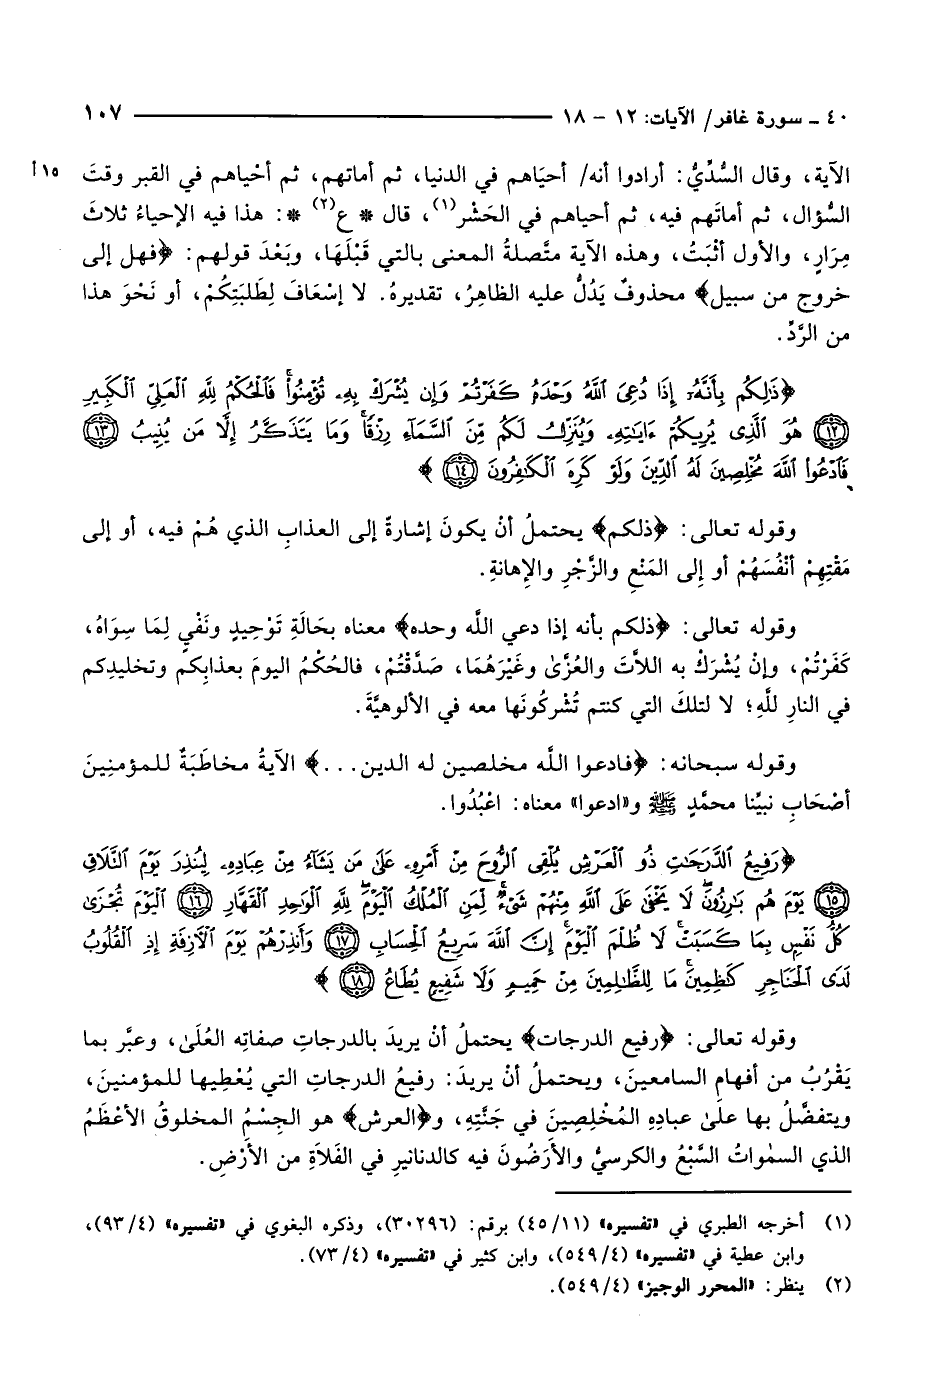 ٤٠ ـ سورة غافر/ الآيات: ١٢ - ١٨ ١٠٧
الآية، وقال السُّدِّيُّ: أرادوا أنه/ أحيَاهم في الدنيا، ثم أماتهم، ثم أحْياهم في القبر وقتَ ١٥أ
السُّؤال، ثم أماتَهم فيه، ثم أحياهم في الحَشْر(١)، قال * ع(٢) *: هذا فيه الإحياءُ ثلاثَ
مِرَارٍ، والأول أثْبَتُ، وهذه الآية متَّصلةُ المعنى بالتي قَبْلَهَا، وبَعْدَ قولهم: ﴿فهل إلى
خروج من سبيل﴾ محذوفٌ يَدُلُّ عليه الظاهِرُ، تقديرهُ. لا إسْعَافَ لِطَلبَتِكُمْ، أو نَحْوَ هذا
من الرَّدِّ.
﴿ذَٰلِكُم بِأَنَّهُۥٓ إِذَا دُعِىَ ٱللَّهُ وَحْدَهُۥ كَفَرْتُمْ وَإِن يُشْرَكْ بِهِۦ تُؤْمِنُواْ فَٱلْحُكْمُ لِلَّهِ ٱلْعَلِىِّ ٱلْكَبِيرِ
﴿١٢﴾ هُوَ ٱلَّذِى يُرِيكُمْ ءَايَٰتِهِۦ وَيُنَزِّلُ لَكُم مِّنَ ٱلسَّمَآءِ رِزْقًا وَمَا يَتَذَكَّرُ إِلَّا مَن يُنِيبُ ﴿١٣﴾
فَٱدْعُواْ ٱللَّهَ مُخْلِصِينَ لَهُ ٱلدِّينَ وَلَوْ كَرِهَ ٱلْكَٰفِرُونَ ﴿١٤﴾ ﴾
وقوله تعالى: ﴿ذلكم﴾ يحتملُ أنْ يكونَ إشارةً إلى العذابِ الذي هُمْ فيه، أو إلى
مَقْتِهِمْ أنْفُسَهُمْ أو إلى المَنْعِ والزَّجْرِ والإهانةِ.
وقوله تعالى: ﴿ذلكم بأنه إذا دعي اللَّه وحده﴾ معناه بحَالَةِ تَوْحِيدٍ ونَفْيٍ لِمَا سِوَاهُ،
كَفَرْتُمْ، وإنْ يُشْرَكْ به اللاَّتَ والعُزَّىٰ وغَيْرَهُمَا، صَدَّقْتُمْ، فالحُكْمُ اليومَ بعذابِكم وتخليدِكم
في النارِ للَّهِ؛ لا لتلكَ التي كنتم تُشْركُونَها معه في الألوهيَّةَ.
وقوله سبحانه: ﴿فادعوا اللَّه مخلصين له الدين...﴾ الآيةُ مخاطَبَةٌ للمؤمنِينَ
أصْحَابِ نبيِّنا محمَّدٍ ﷺ و«ادعوا» معناه: اعْبُدُوا.
﴿رَفِيعُ ٱلدَّرَجَٰتِ ذُو ٱلْعَرْشِ يُلْقِى ٱلرُّوحَ مِنْ أَمْرِهِۦ عَلَىٰ مَن يَشَآءُ مِنْ عِبَادِهِۦ لِيُنذِرَ يَوْمَ ٱلتَّلَاقِ
﴿١٥﴾ يَوْمَ هُم بَٰرِزُونَ لَا يَخْفَىٰ عَلَى ٱللَّهِ مِنْهُمْ شَىْءٌ لِّمَنِ ٱلْمُلْكُ ٱلْيَوْمَ لِلَّهِ ٱلْوَٰحِدِ ٱلْقَهَّارِ ﴿١٦﴾ ٱلْيَوْمَ تُجْزَىٰ
كُلُّ نَفْسٍۭ بِمَا كَسَبَتْ لَا ظُلْمَ ٱلْيَوْمَ إِنَّ ٱللَّهَ سَرِيعُ ٱلْحِسَابِ ﴿١٧﴾ وَأَنذِرْهُمْ يَوْمَ ٱلْأَزِفَةِ إِذِ ٱلْقُلُوبُ
لَدَى ٱلْحَنَاجِرِ كَٰظِمِينَ مَا لِلظَّٰلِمِينَ مِنْ حَمِيمٍ وَلَا شَفِيعٍ يُطَاعُ ﴿١٨﴾ ﴾
وقوله تعالى: ﴿رفيع الدرجات﴾ يحتملُ أنْ يريدَ بالدرجاتِ صفاتِه العُلَىٰ، وعبَّر بما
يَقْرُبُ من أفهامِ السامعينَ، ويحتملُ أنْ يريدَ: رفيعُ الدرجاتِ التي يُعْطِيها للمؤمنينَ،
ويتفضَّلُ بها علىٰ عبادِهِ المُخْلِصِينَ في جَنَّتِهِ، و﴿العرش﴾ هو الجِسْمُ المخلوقُ الأعْظَمُ
الذي السمٰواتُ السَّبْعُ والكرسيُّ والأرَضُونَ فيه كالدنانيرِ في الفَلاَةِ من الأرْضِ.
(١) أخرجه الطبري في «تفسيره» (٤٥/١١) برقم: (٣٠٢٩٦)، وذكره البغوي في «تفسيره» (٩٣/٤)،
وابن عطية في «تفسيره» (٥٤٩/٤)، وابن كثير في «تفسيره» (٧٣/٤).
(٢) ينظر: «المحرر الوجيز» (٥٤٩/٤).